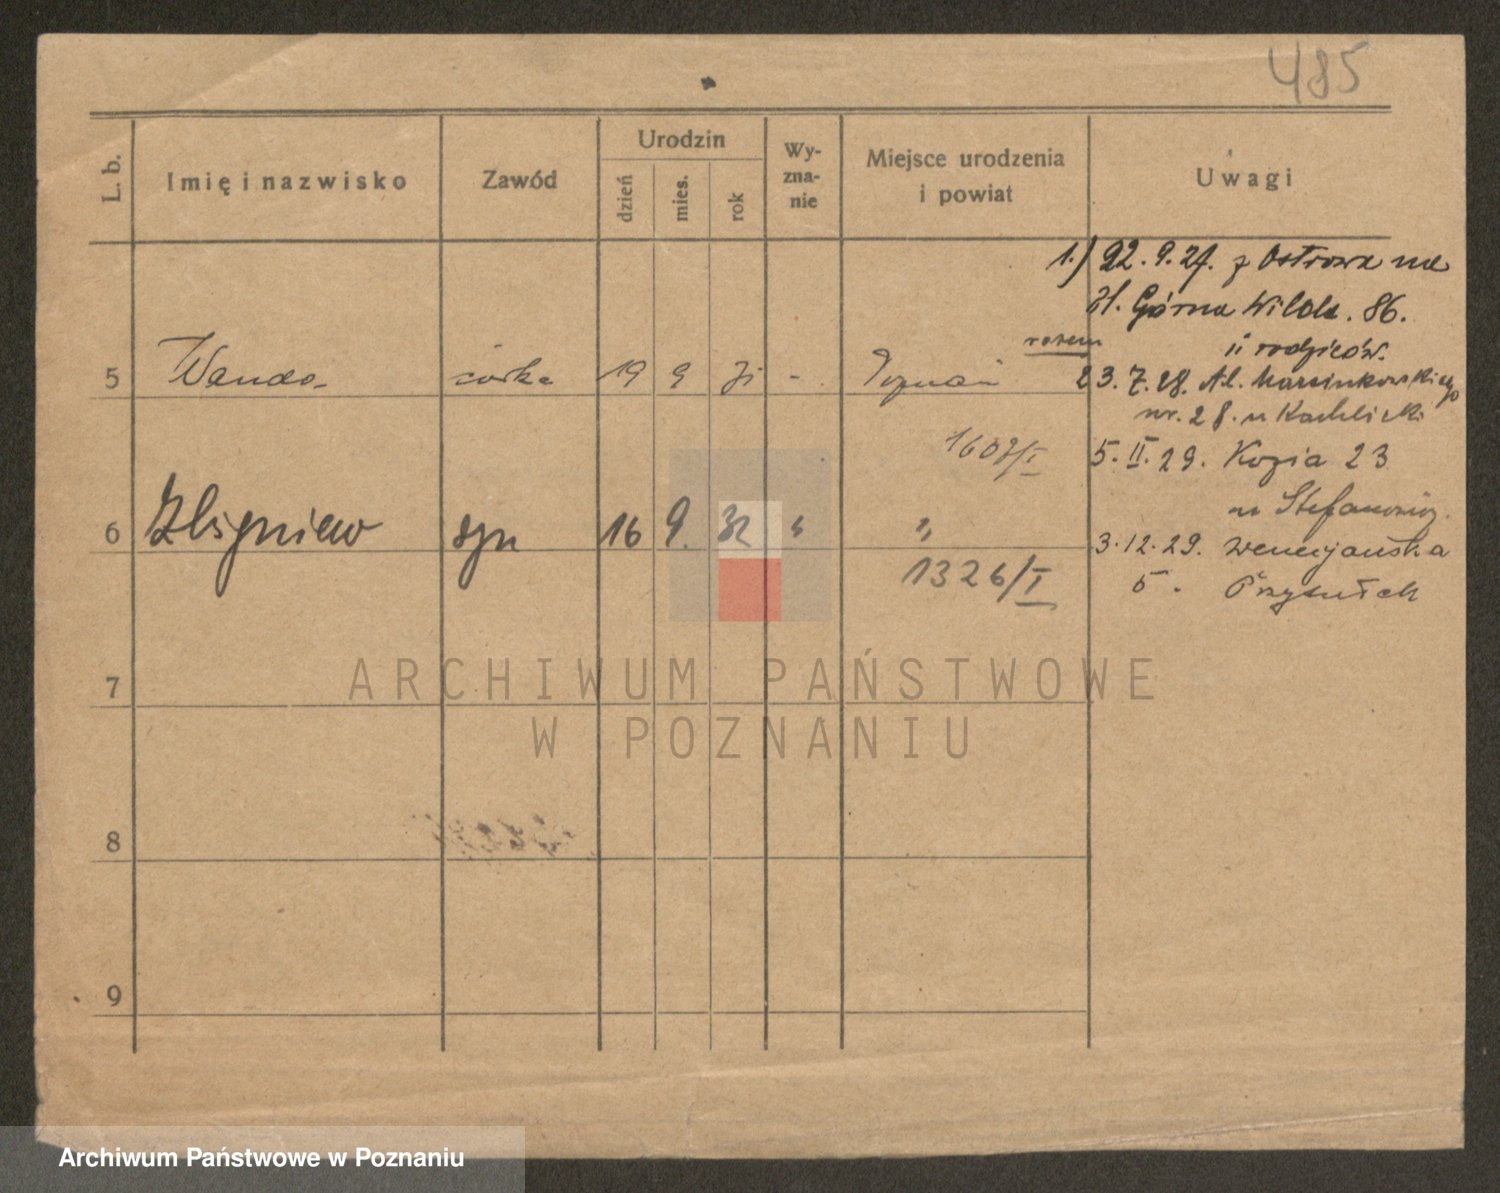 485
L. b. Imię i nazwisko Zawód Urodzin dzień mies. rok Wy-zna-nie Miejsce urodzenia i powiat Uwagi
1.) 22.9.27. z Ostrowa na
Górna Wilda. 86.
razem u rodziców.
5 Wanda córka 19 9 31 - Poznań 23.7.28. Al. Marcinkowskiego
nr. 28. u Kachlicki
1607/I 5.II.29. Kozia 23
u Stefanowicz.
6 Zbigniew syn 16 9. 32 " " 3.12.29. Wenecjańska
1326/I 5. Przybułek
7
8
9
ARCHIWUM PAŃSTWOWE
W POZNANIU
Archiwum Państwowe w Poznaniu